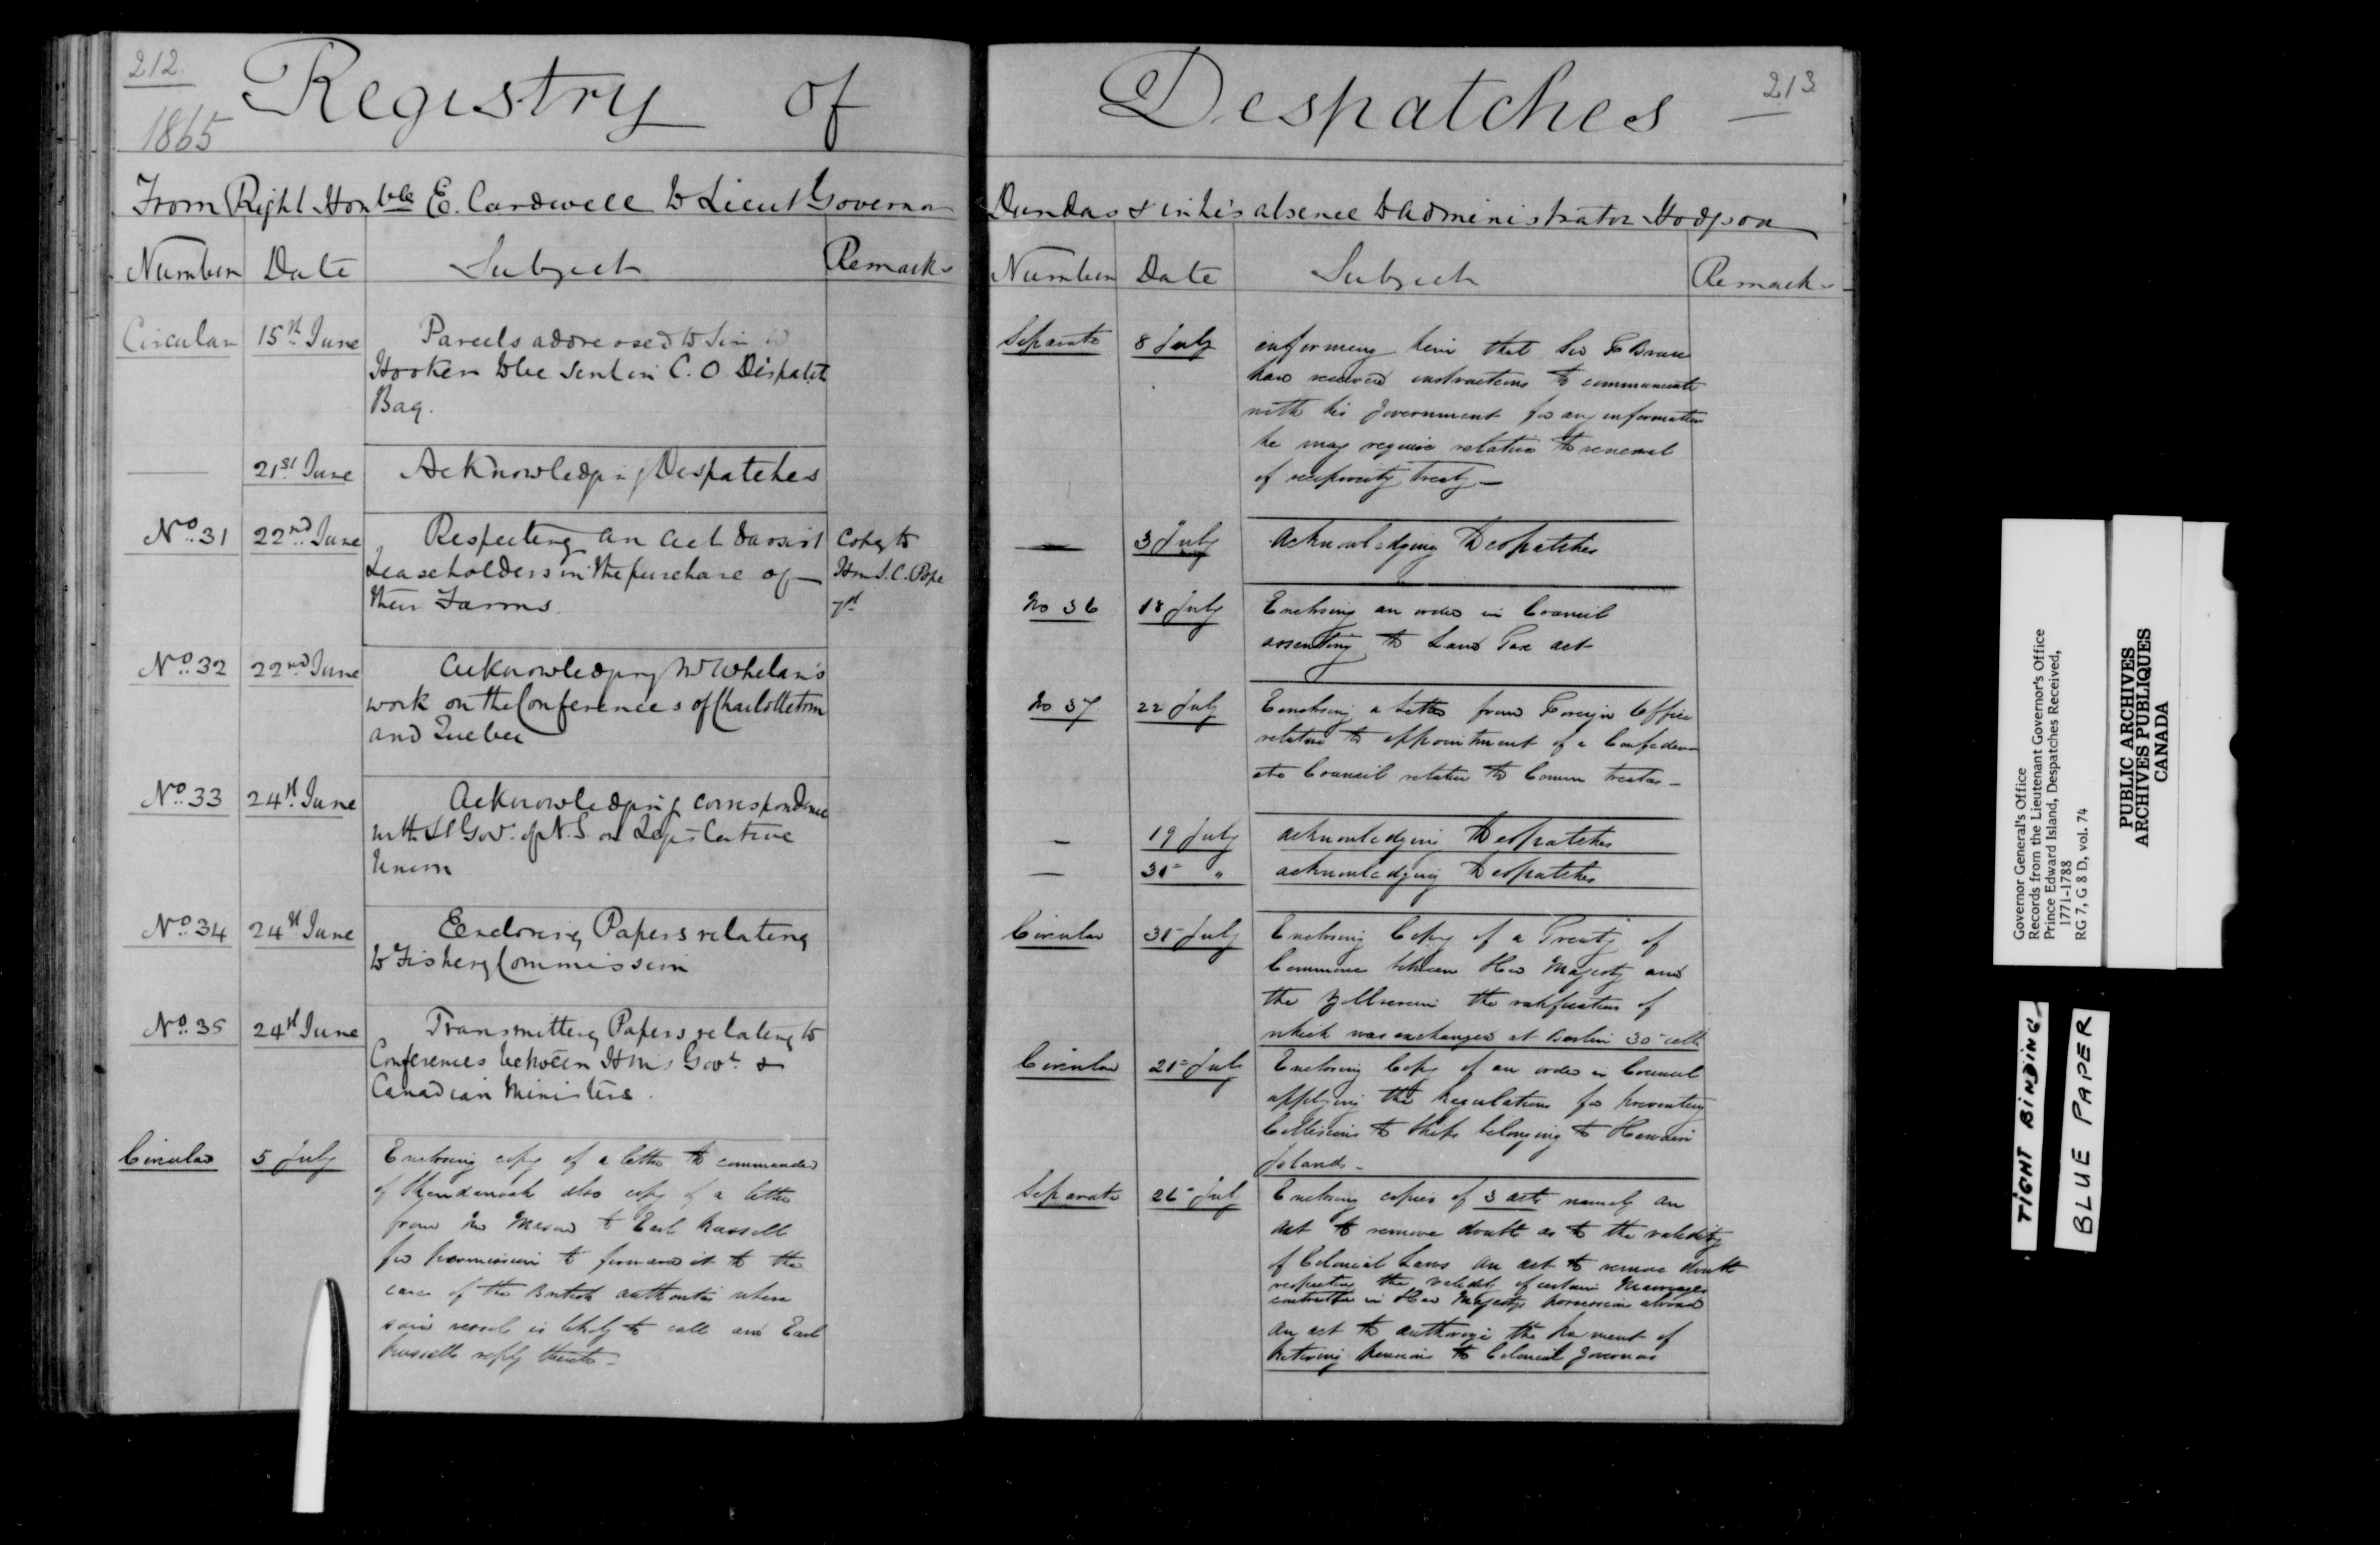 212.
1865
Registry of
From Right Honble E. Cardwell to Lieut Governor
Number Date Subject Remarks
Circular 15th June Parcels addressed to Sir W
Hooker to be sent in C. O Dispatch
Bag.
— 21st June Acknowledging Despatches
No. 31 22nd June Respecting an Act to assist Copy to
Leaseholders in the purchase of Hon J. C. Pope
their Farms.
No. 32 22nd June Acknowledging Mr Whelan's
work on the Conferences of Charlottetown
and Quebec
No. 33 24th June Acknowledging correspondence
with Lt Govr. of N.S. on Legislative
Union
No. 34 24th June Enclosing Papers relating
to Fishery Commission
No. 35 24th June Transmitting Papers relating to
Conferences between H M's Govt. &
Canadian Ministers.
Circular 5 July Enclosing copy of a letter to commander
of Shenandoah also copy of a letter
from Mr Mason to Earl Russell
for permission to forward it to the
care of the British authorities where
said vessel is likely to call and Earl
Russells reply thereto —
213
Despatches
Dundas & in his absence to Administrator Hodgson
Number Date Subject Remarks
Separate 8 July informing him that Sir F Bruce
has received instructions to communicate
with his Government for any information
he may require relative to renewal
of reciprocity treaty —
— 3 July Acknowledging Despatches
No 36 18 July Enclosing an order in Council
assenting to Land Tax act
No 37 22 July Enclosing a letter from Foreign Office
relative to appointment of a Confeder-
ate Council relative to Comm treaties —
— 19 July acknowledging Despatches
— 31 " acknowledging Despatches
Circular 31 July Enclosing Copy of a Treaty of
Commerce between Her Majesty and
the Zollverein the ratification of
which was exchanged at Berlin 30 ult
Circular 21 July Enclosing Copy of an order in Council
applying the Regulations for preventing
Collisions to Ships belonging to Hawaiin
Islands —
Separate 26 July Enclosing copies of 3 acts namely an
act to remove doubts as to the validity
of Colonial Laws an act to remove doubts
respecting the validity of certain Marriages
contracted in Her Majestys possessions abroad
an act to authorize the payment of
Retiring Pensions to Colonial Governors
Governor General's Office
Records from the Lieutenant Governor's Office
Prince Edward Island, Despatches Received,
1771-1788
RG 7, G 8 D, vol. 74
PUBLIC ARCHIVES
ARCHIVES PUBLIQUES
CANADA
TIGHT BINDING
BLUE PAPER